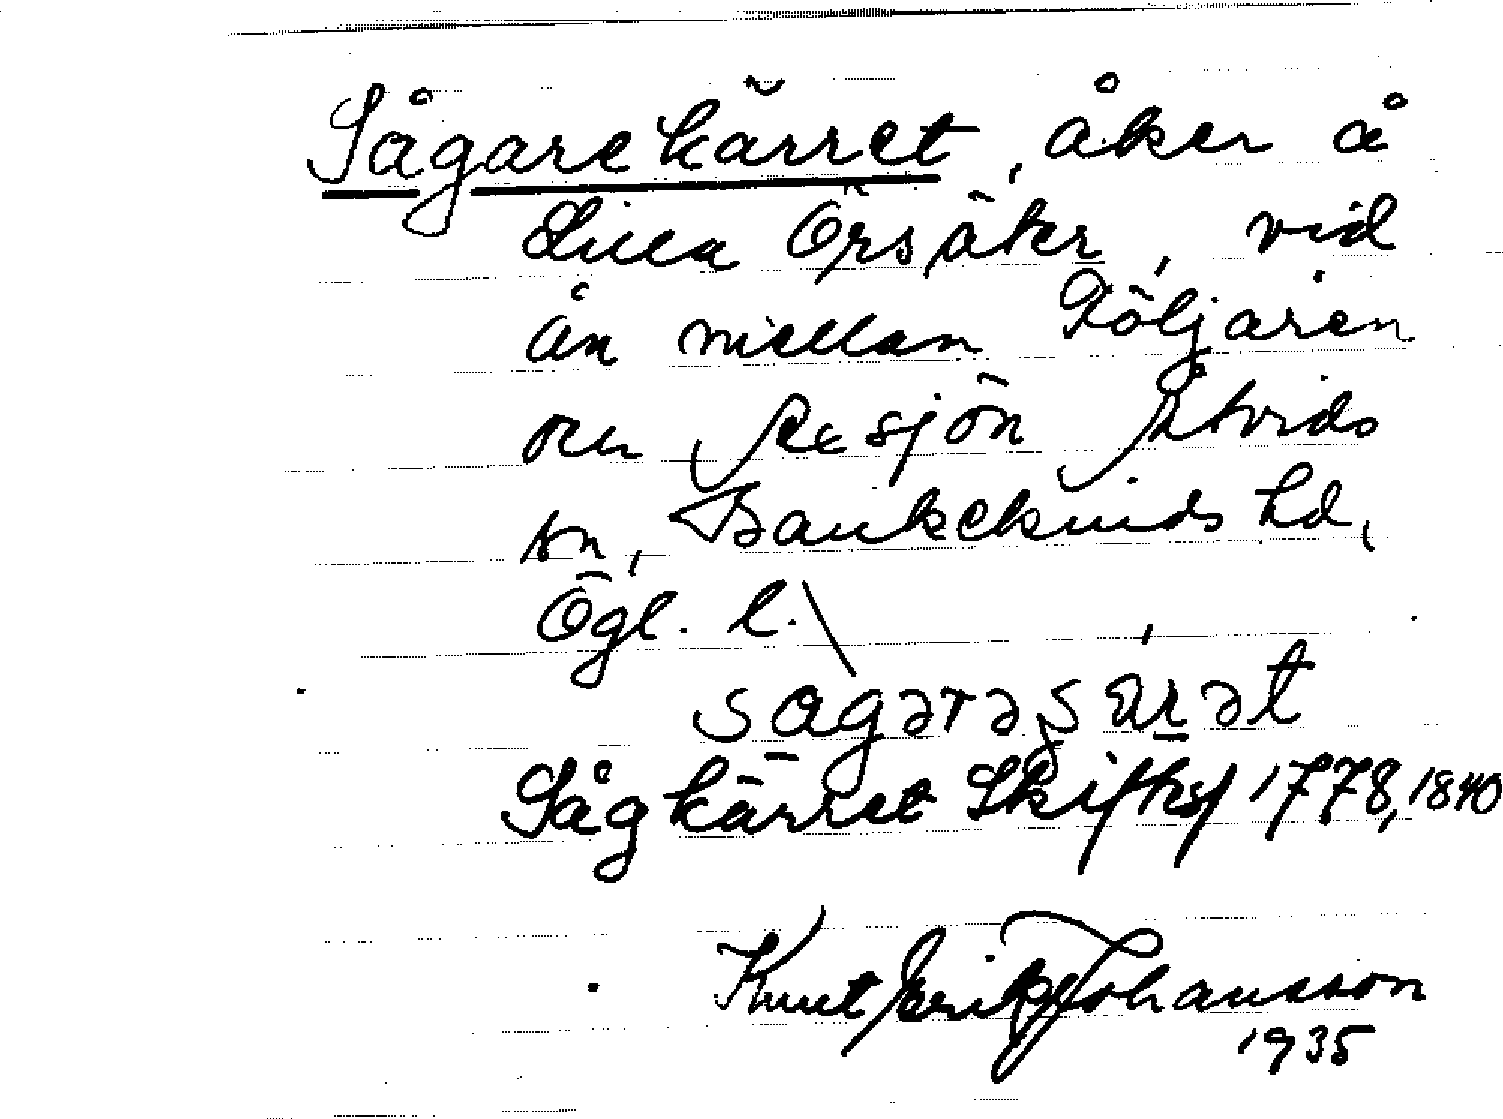 Sågarekärret, åker å
Lilla Örsäter, vid
ån mellan Följaren
och Exsjön Åtvids
sn, Bankekinds hd,
Ögl. l.
Sågkärret Skifteshf 1778, 1840
Knut Erik Johansson
1935